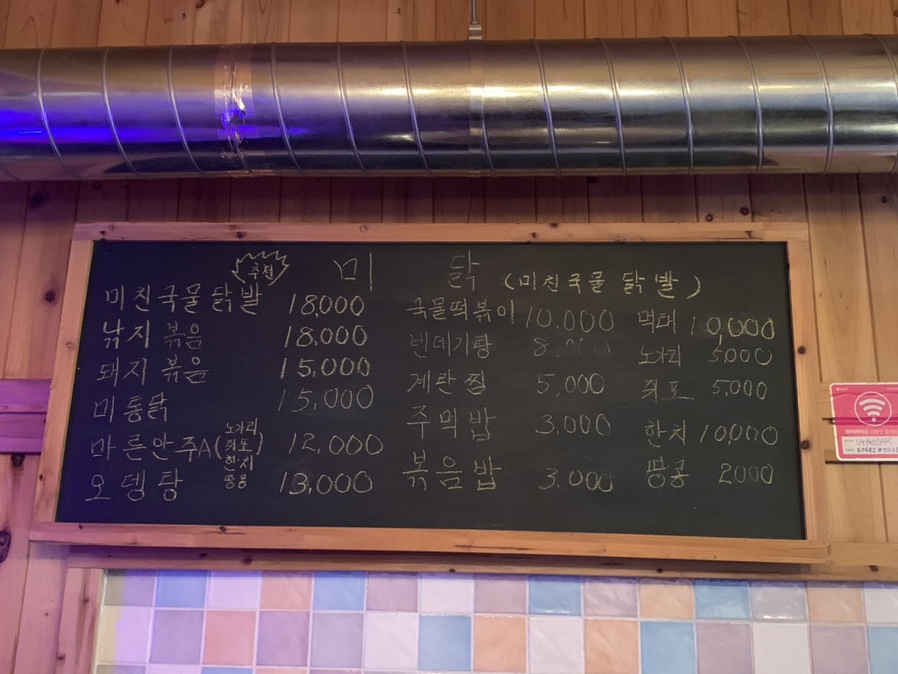 추천
미 닭 (미친국물 닭발)
미친국물닭발 18,000
낚지볶음 18,000
돼지볶음 15,000
미통닭 15,000
마른안주A(노가리 쥐포 한치 땅콩) 12,000
오뎅탕 13,000
국물떡볶이 10,000
번데기탕 8,000
계란찜 5,000
주먹밥 3,000
볶음밥 3,000
먹태 10,000
노가리 5,000
쥐포 5,000
한치 10,000
땅콩 2000